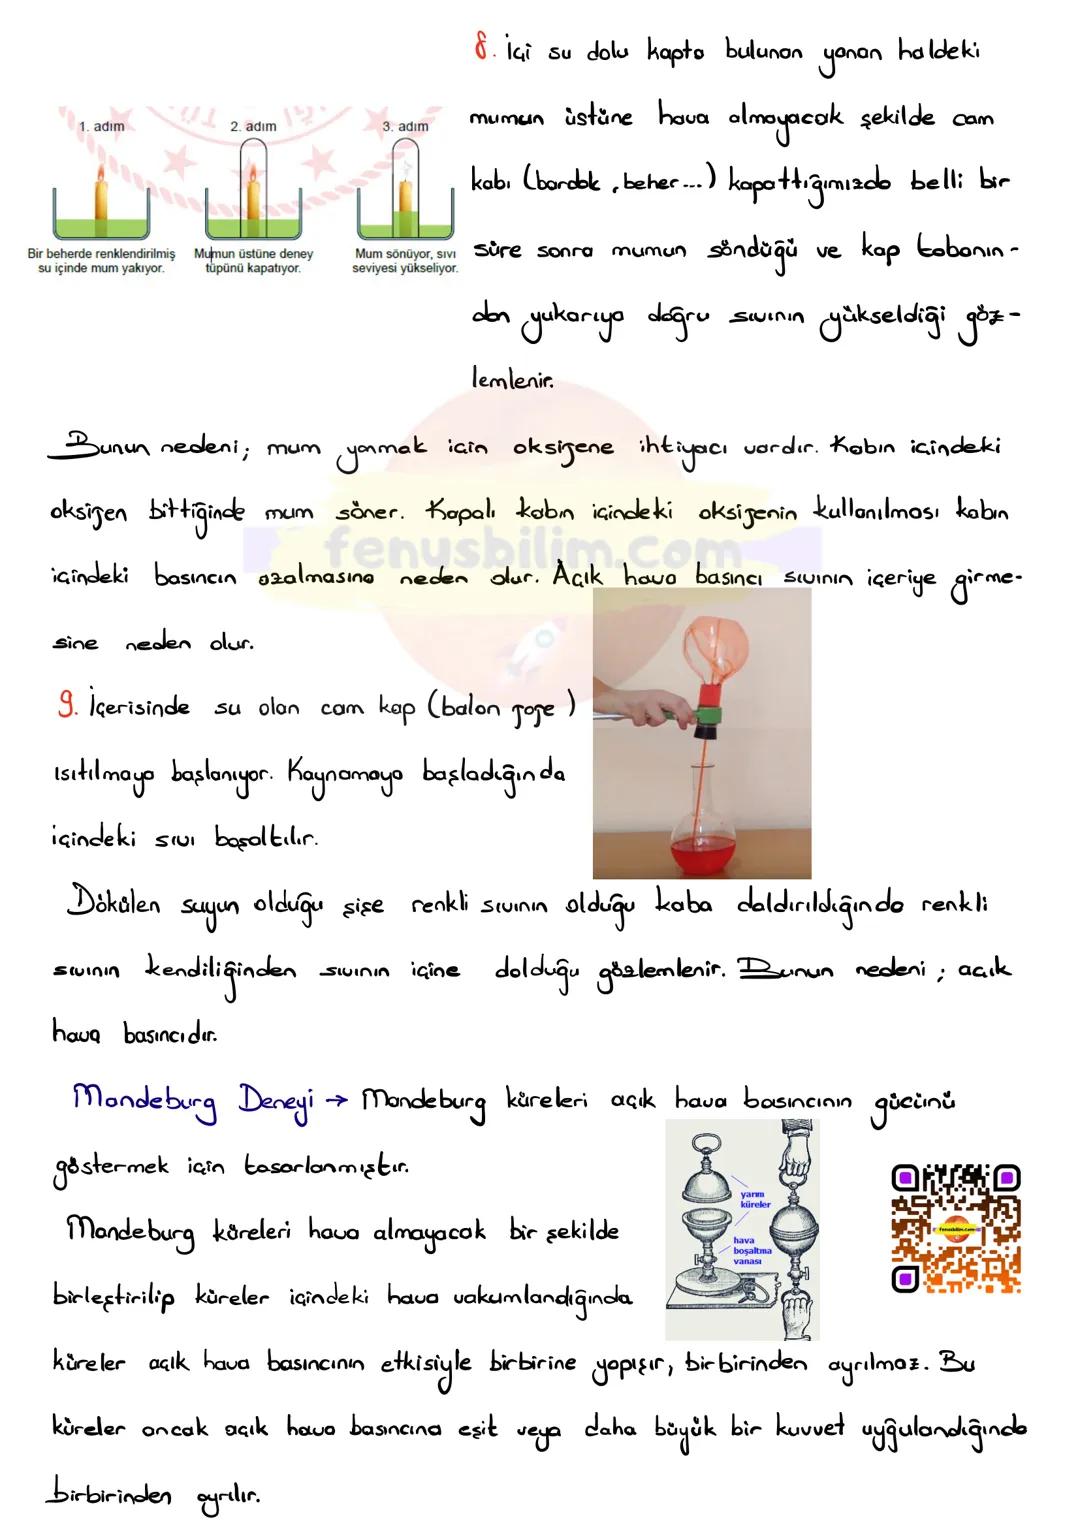 8. İçi su dolu kapta bulunan yanan haldeki
mumun üstüne hava almayacak şekilde cam
kabı (bardak, beher...) kapattığımızda belli bir
süre sonra mumun söndüğü ve kap tabanın-
dan yukarıya doğru sıvının yükseldiği göz-
lemlenir.
1. adım
2. adım
3. adım
Bir beherde renklendirilmiş
su içinde mum yakıyor.
Mumun üstüne deney
tüpünü kapatıyor.
Mum sönüyor, sıvı
seviyesi yükseliyor.
Bunun nedeni; mum yanmak için oksijene ihtiyacı vardır. Kabın içindeki
oksijen bittiğinde mum söner. Kapalı kabın içindeki oksijenin kullanılması kabın
fenusbilim.com
içindeki basıncın azalmasına neden olur. Açık hava basıncı sıvının içeriye girme-
sine neden olur.
9. İçerisinde su olan cam kap (balon joje)
ısıtılmaya başlanıyor. Kaynamaya başladığında
içindeki sıvı boşaltılır.
Dökülen suyun olduğu şişe renkli sıvının olduğu kaba daldırıldığında renkli
sıvının kendiliğinden sıvının içine dolduğu gözlemlenir. Bunun nedeni; açık
hava basıncıdır.
Mandeburg Deneyi → Mandeburg küreleri açık hava basıncının gücünü
göstermek için tasarlanmıştır.
Mandeburg küreleri hava almayacak bir şekilde
birleştirilip küreler içindeki hava vakumlandığında
küreler açık hava basıncının etkisiyle birbirine yapışır, birbirinden ayrılmaz. Bu
küreler ancak açık hava basıncına eşit veya daha büyük bir kuvvet uyğulandığında
birbirinden ayrılır.
yarım
küreler
hava
boşaltma
vanası
fenusbilim.com